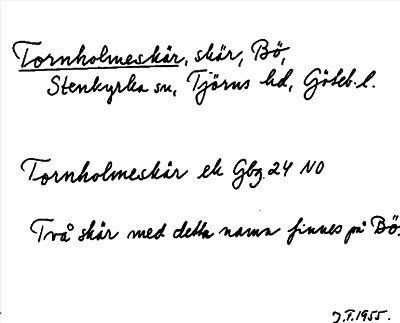 Tornholmeskär, skär, Bö,
Stenkyrka sn, Tjörns hd, Göteb. l.
Tornholmeskär ek Gbg. 24 NO
Två skär med detta namn finnes på Bö.
J.T. 1955.